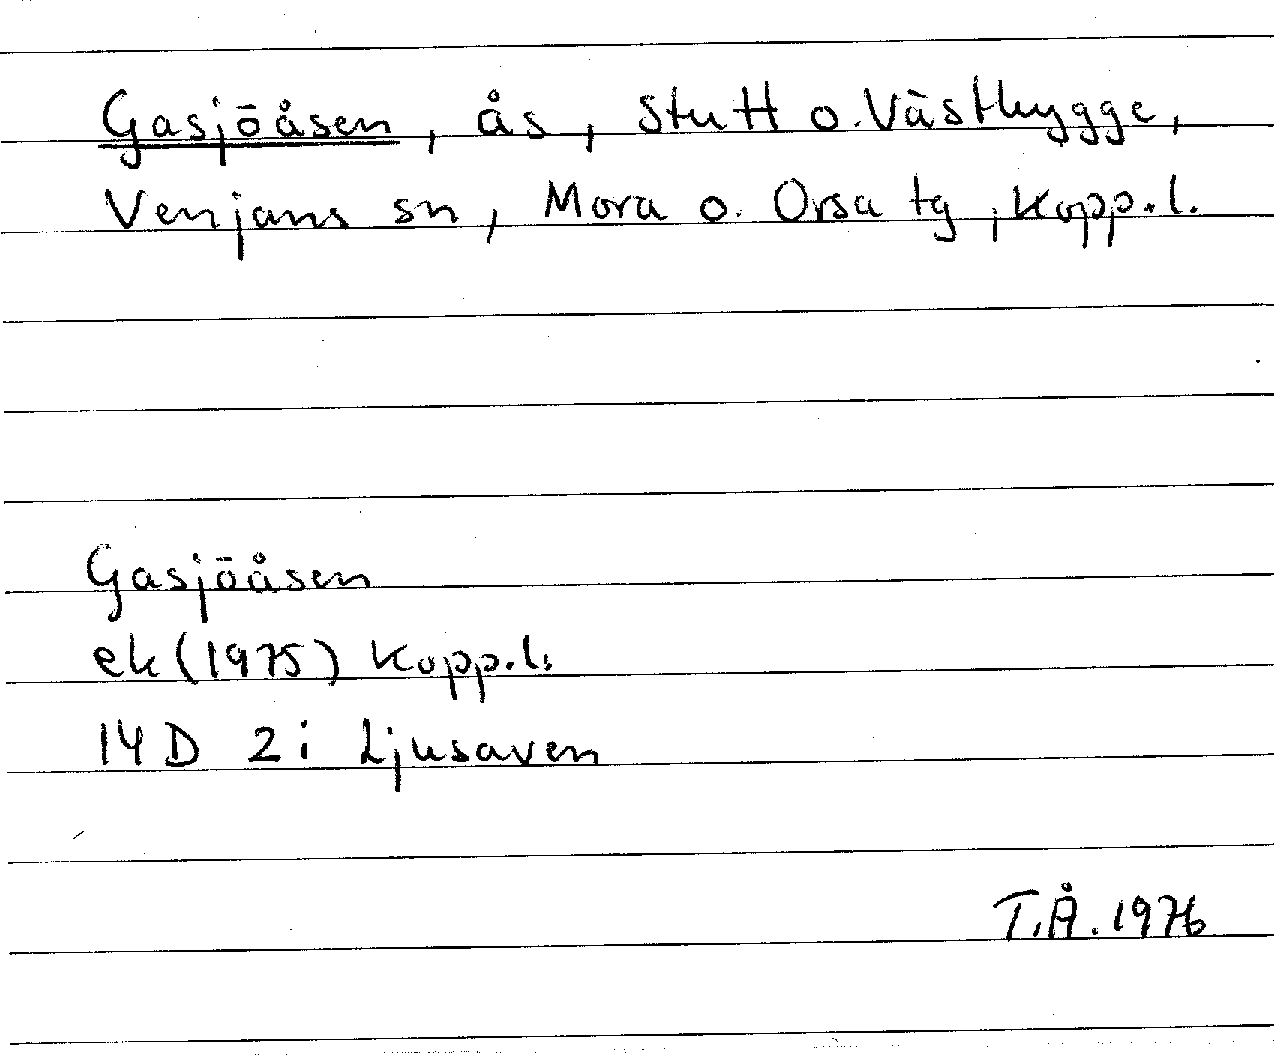 Gasjöåsen, ås, Stutt o. Västbygge,
Venjans sn, Mora o. Orsa tg, Kopp.l.
Gasjöåsen
ek (1975) Kopp.l.
14 D 2 i Ljusaven
T.Å. 1976